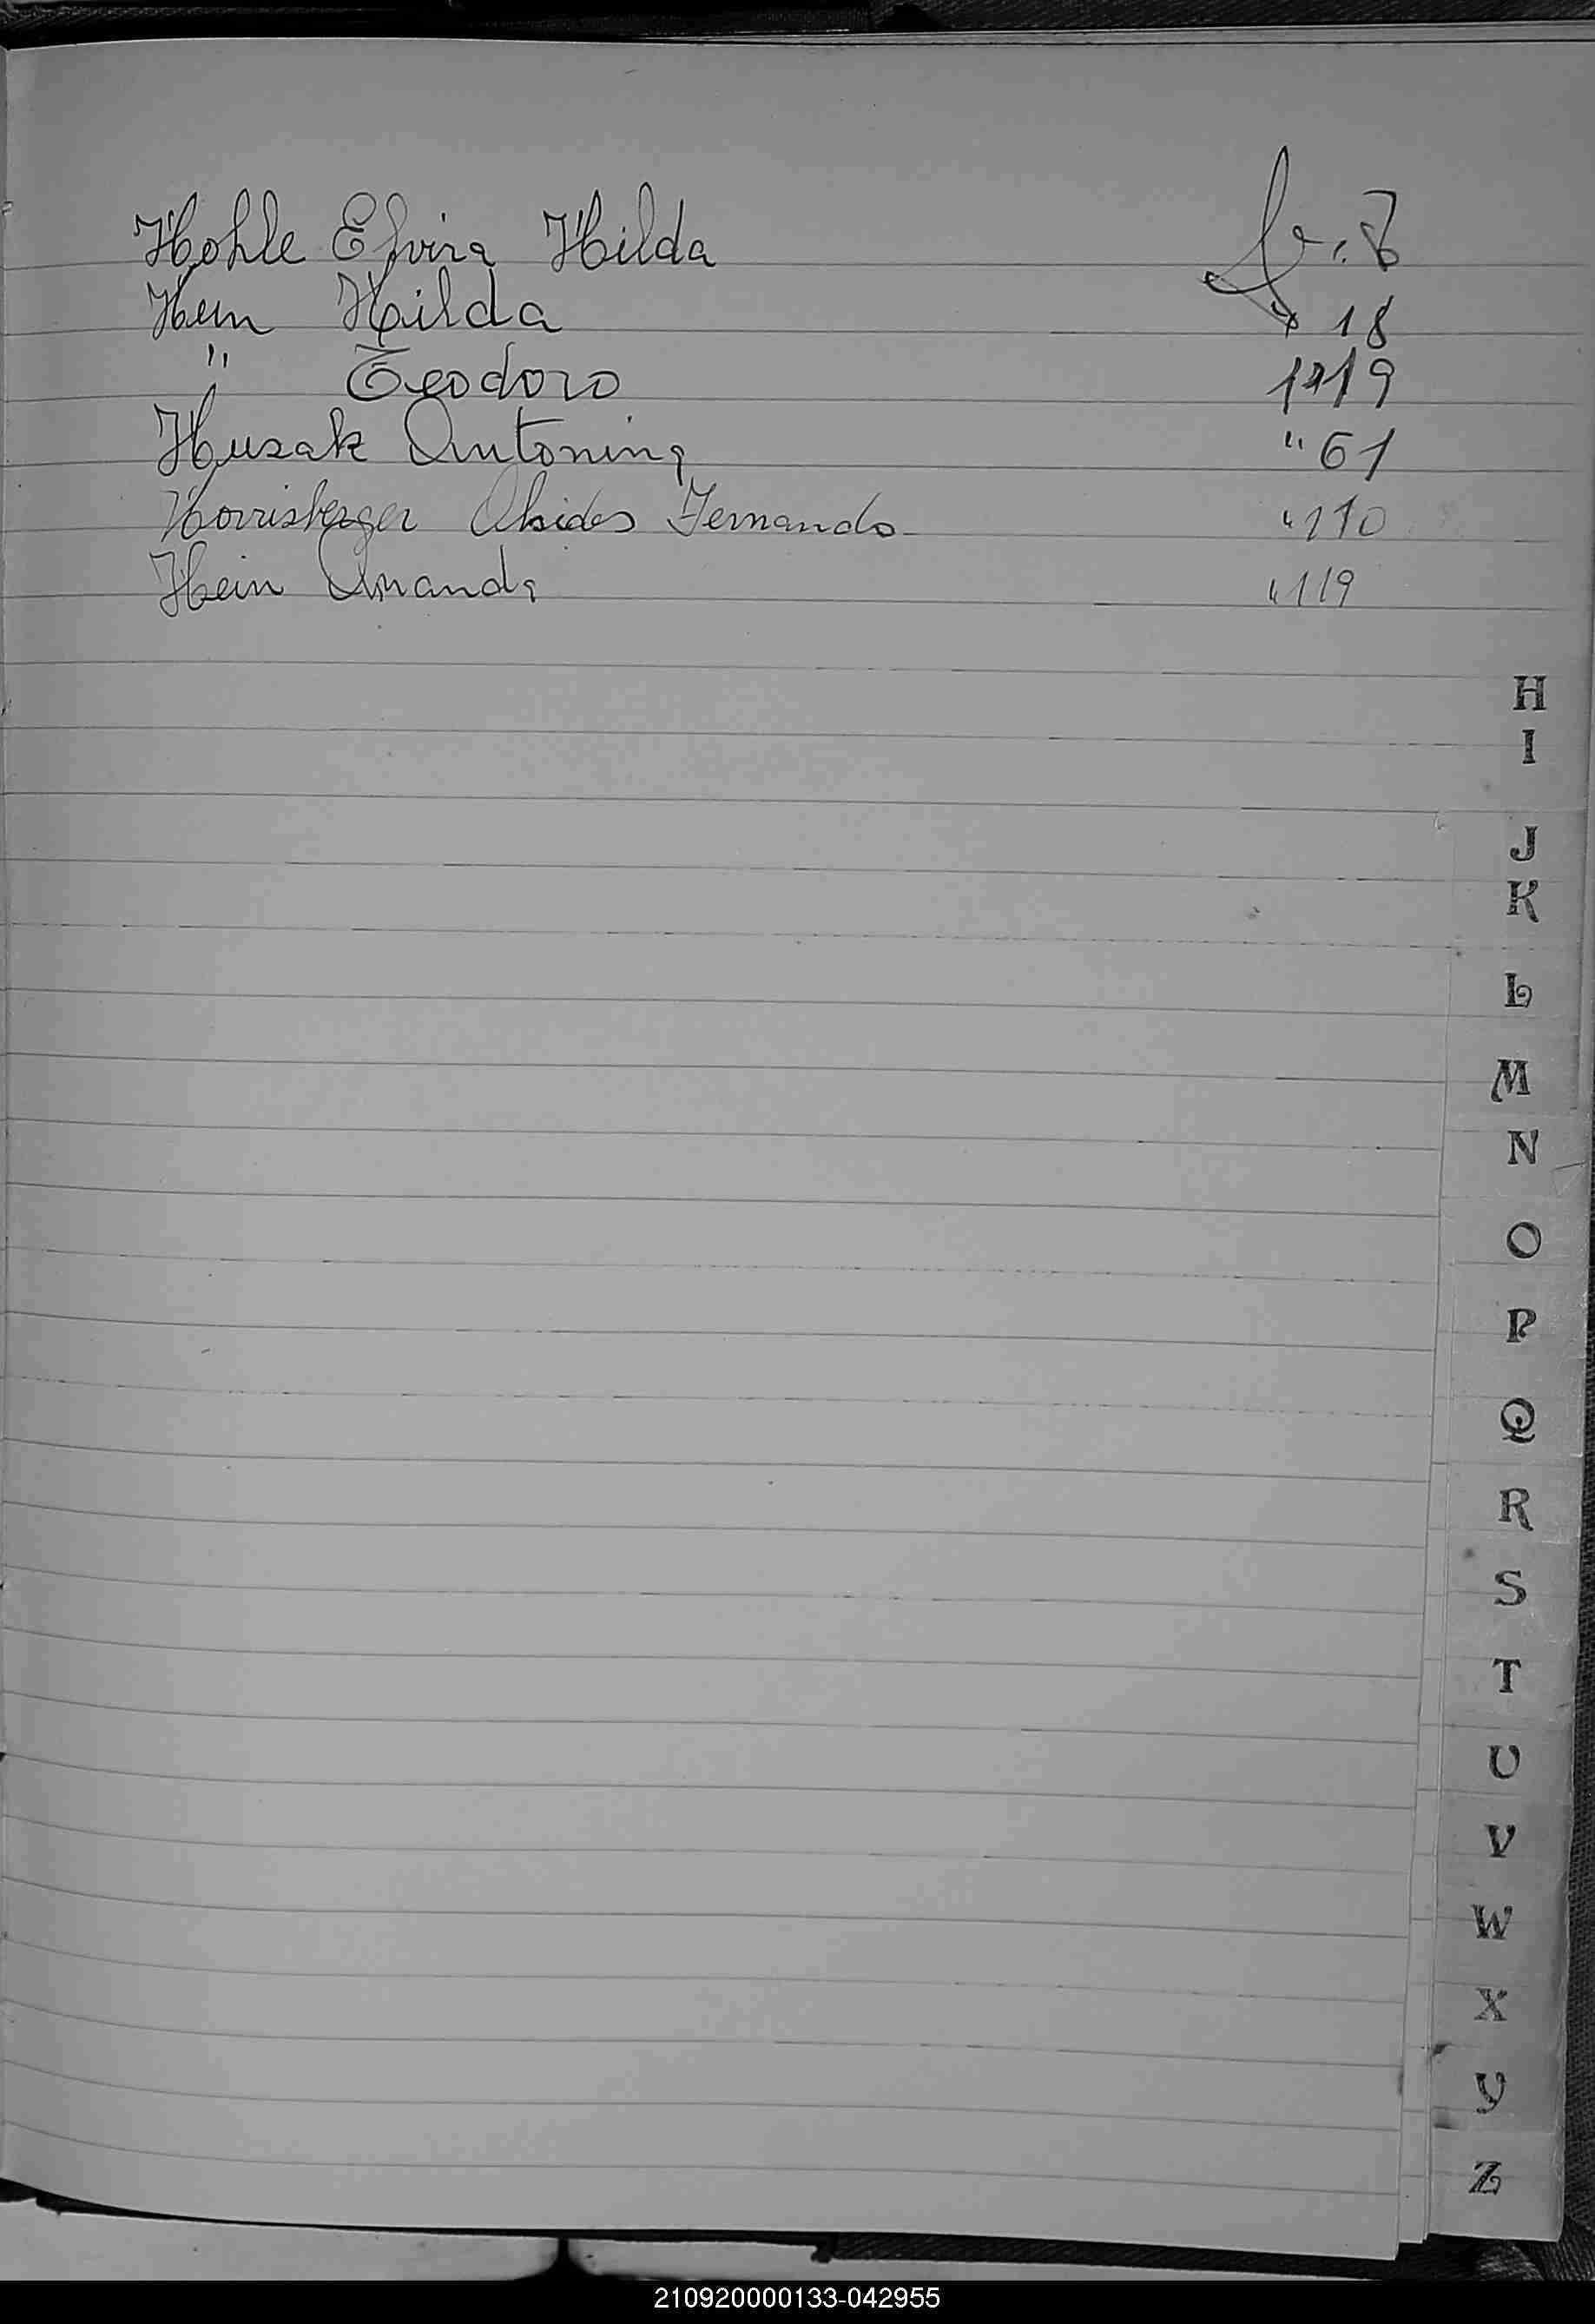 Hohle Elvira Hilda
Hein Hilda " 18
" Teodoro " 19
Husak Antonina " 61
Horrisberger Alsides Fernando " 110
Hein Amanda " 119
H
I
J
K
L
M
N
O
P
Q
R
S
T
U
V
W
X
Y
Z
210920000133-042955